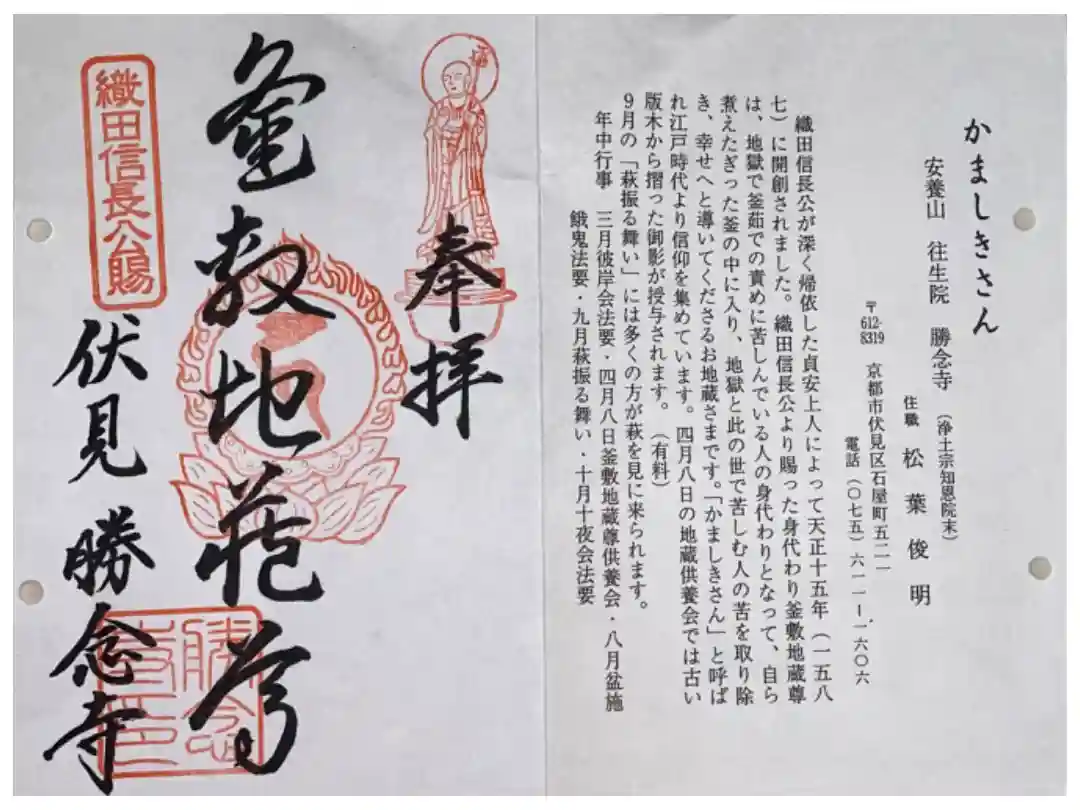 かましきさん
安養山 往生院 勝念寺 (浄土宗知恩院末)
住職 松葉俊明
〒612-8319 京都市伏見区石屋町五二一
電話(〇七五)六一一ー一六〇六
織田信長公が深く帰依した貞安上人によって天正十五年(一五八
七)に開創されました。織田信長公より賜った身代わり釜敷地蔵尊
は、地獄で釜茹での責めに苦しんでいる人の身代わりとなって、自ら
煮えたぎった釜の中に入り、地獄と此の世で苦しむ人の苦を取り除
き、幸せへと導いてくださるお地蔵さまです。「かましきさん」と呼ば
れ江戸時代より信仰を集めています。四月八日の地蔵供養会では古い
版木から摺った御影が授与されます。(有料)
9月の「萩振る舞い」には多くの方が萩を見に来られます。
年中行事 三月彼岸会法要・四月八日釜敷地蔵尊供養会・八月盆施
餓鬼法要・九月萩振る舞い・十月十夜会法要
奉拝
釜敷地蔵尊
織田信長公賜
伏見 勝念寺
勝念
寺印